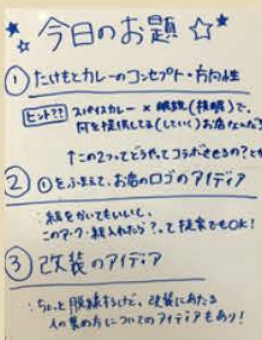 今日のお題
① たけもとカレーのコンセプト・方向性
ヒント?? スパイスカレー × 眼鏡(接眼)で、
何を提供してる(していく)お店なんだろ
↑この2つってどうやってコラボさせるの?とか
② ①をふまえて、お店のロゴのアイディア
:絵をかいてもいいし、
このマーク・絵入れたら?って提案でもOK!
③ 改装のアイディア
:ちょっと脱線するけど、改装にあたる
人の集め方についてのアイディアもあり!